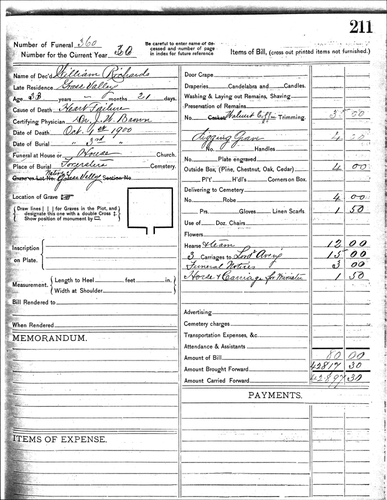 211
Number of Funeral 360
Number for the Current Year 36
Be careful to enter name of deceased and number of page in index for future reference
Items of Bill, (cross out printed items not furnished.)
Name of Dec'd William Richards
Late Residence Grass Valley
Age, 58 years — months 21 days.
Cause of Death Heart Failure
Certifying Physician Dr. J. W. Brown
Date of Death Oct. 1900
Date of Burial " 3rd "
Funeral at House House Church.
Place of Burial Cemetery.
Owner or Lot No. Grass Valley Section No.
Location of Grave
Draw lines for Graves in the Plot, and
designate this one with a double Cross
Show position of monument by
Inscription
on Plate.
Measurement. Length to Heel feet in.
Width at Shoulder
Bill Rendered to
When Rendered
MEMORANDUM.
ITEMS OF EXPENSE.
Door Crape
Draperies Candelabra and Candles.
Washing & Laying out Remains, Shaving
Preservation of Remains
No. Casket Walnut Coffin Trimming. 35 00
Digging Grave
No. Handles
Plate engraved
Outside Box, (Pine, Chestnut, Oak, Cedar) 4 00
P/Y H'dl's Corners on Box.
Delivering to Cemetery
No. Robe 4 00
Prs. Gloves Linen Scarfs 1 50
Use of Doz. Chairs
Flowers
Hearse & team 12 00
3 Carriages to 15 00
Funeral Notices 3 00
Horse & Carriage for Minister 1 50
Advertising
Cemetery charges
Transportation Expenses, &c.
Attendance & Assistants
Amount of Bill 80 00
Amount Brought Forward 42817 30
Amount Carried Forward 42897 30
PAYMENTS.